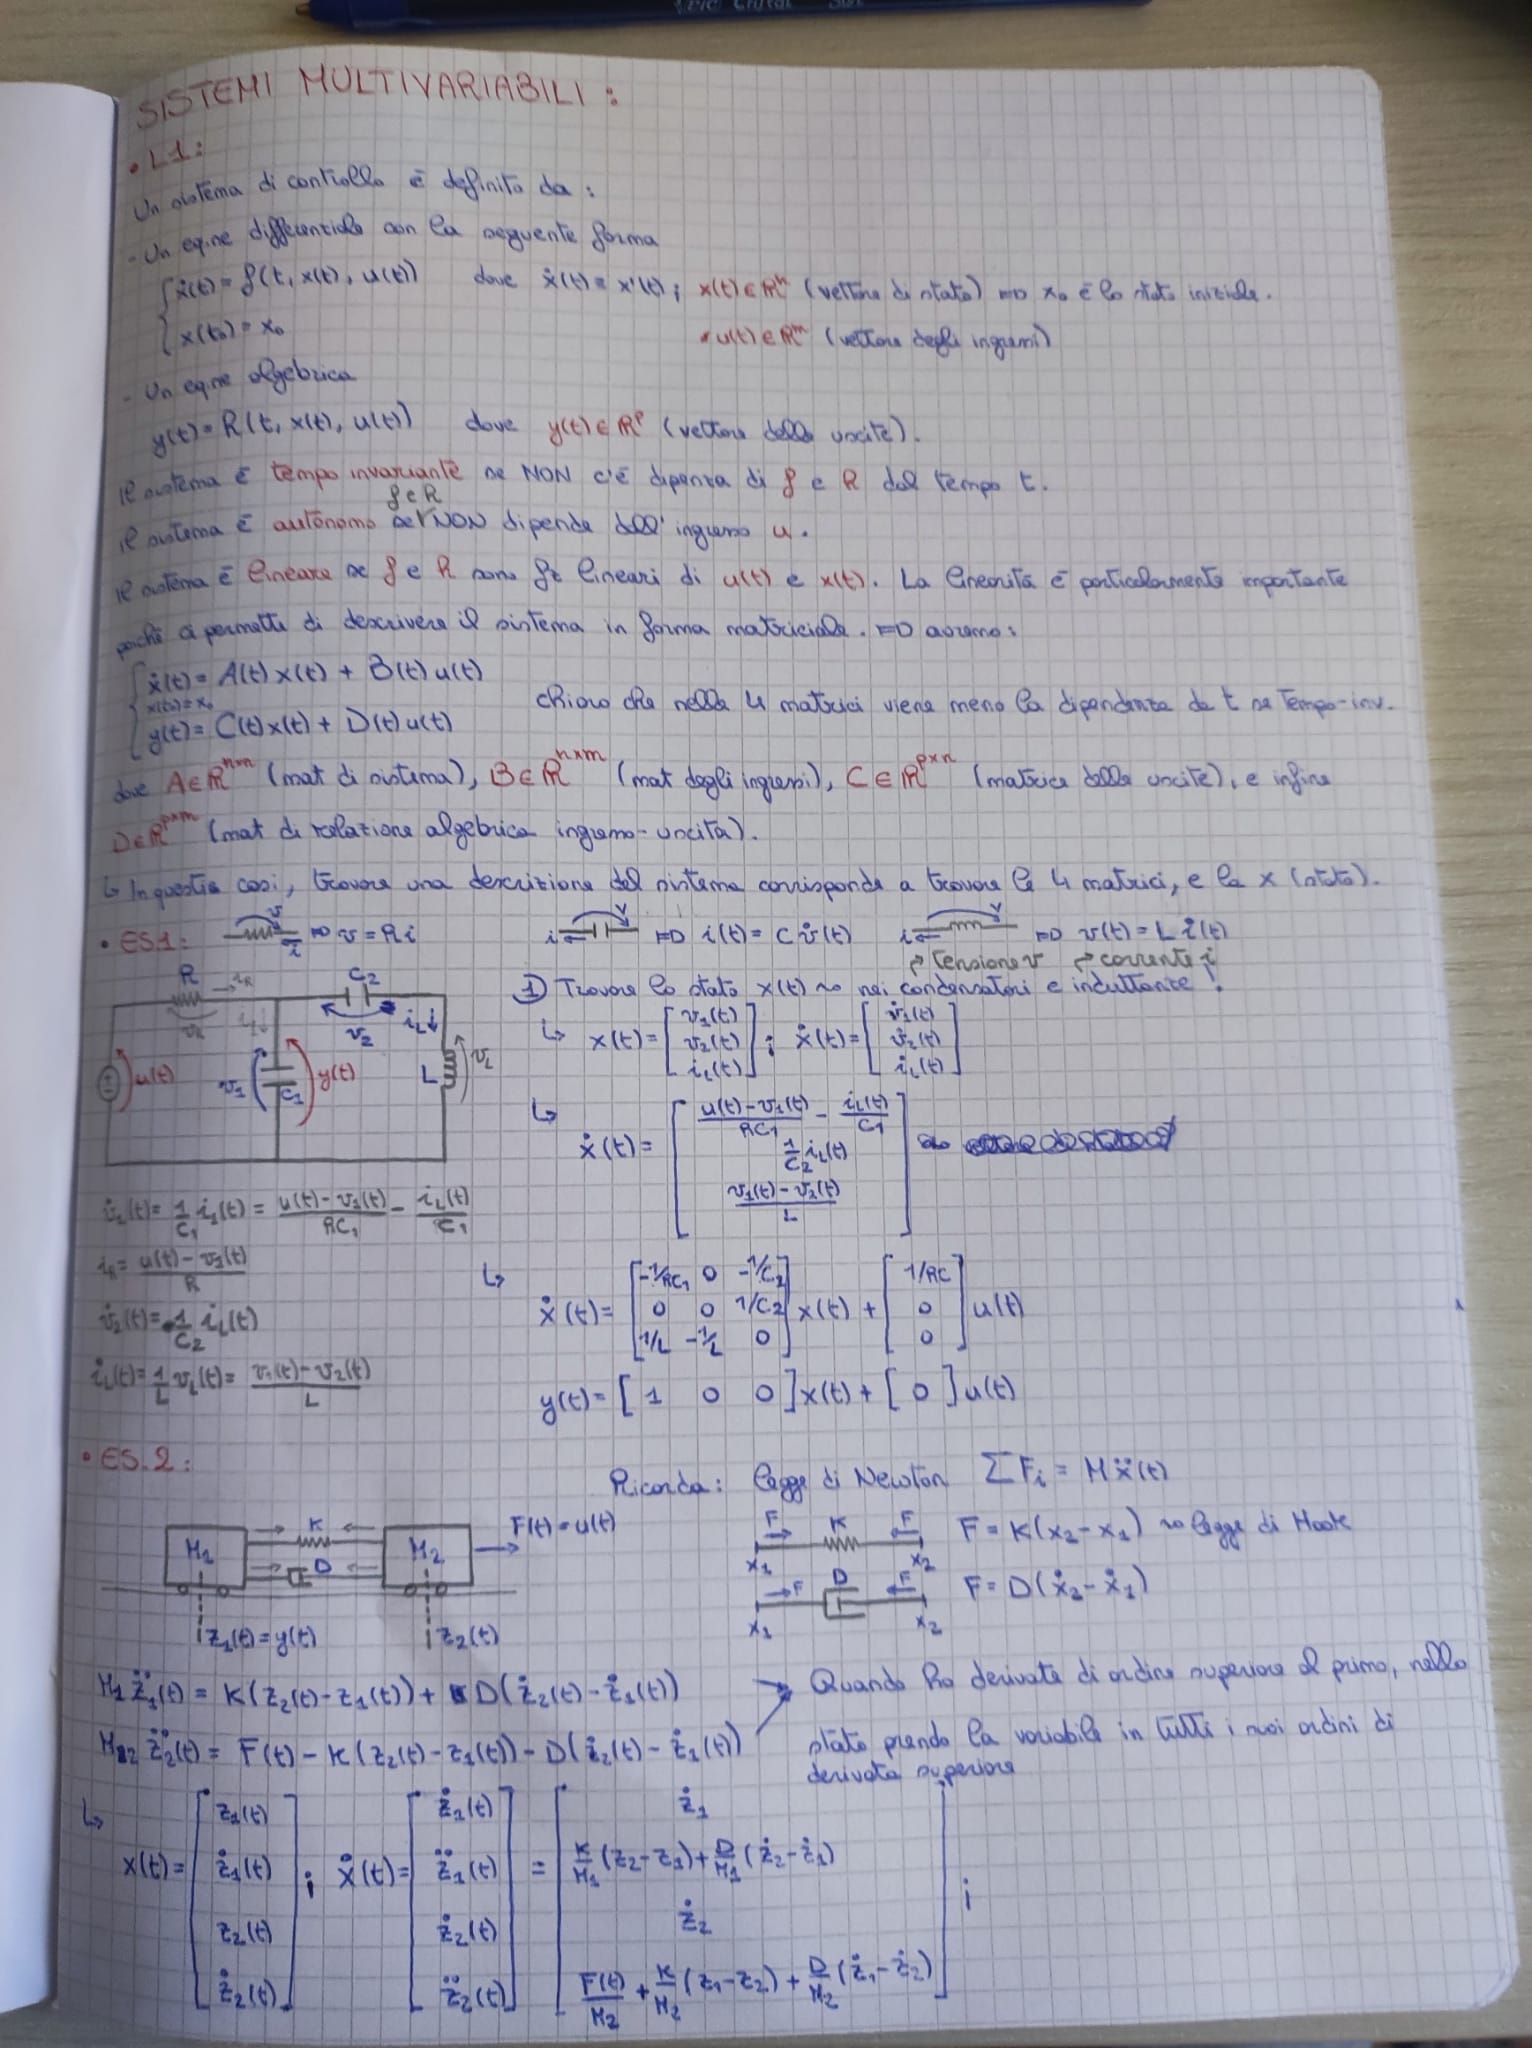 SISTEMI MULTIVARIABILI:
• L1:
Un sistema di controllo è definito da:
- Un eq.ne differenziale con la seguente forma
{ ẋ(t) = f(t, x(t), u(t)) dove ẋ(t) = x'(t); x(t) ∈ ℝⁿ (vettore di stato) => x₀ è lo stato iniziale.
{ x(t₀) = x₀ • u(t) ∈ ℝᵐ (vettore degli ingressi)
- Un eq.ne algebrica
y(t) = h(t, x(t), u(t)) dove y(t) ∈ ℝᵖ (vettore delle uscite).
Il sistema è tempo invariante se NON c'è dipenza di f e h dal tempo t.
Il sistema è autonomo se f e h NON dipende dall'ingresso u.
Il sistema è lineare se f e h sono fz lineari di u(t) e x(t). La linearità è particolarmente importante
poiché ci permette di descrivere il sistema in forma matriciale. => avremo:
{ ẋ(t) = A(t) x(t) + B(t) u(t)
x(t₀) = x₀
{ y(t) = C(t) x(t) + D(t) u(t) chiaro che nelle 4 matrici viene meno la dipendenza da t se tempo-inv.
dove A ∈ ℝⁿˣⁿ (mat di sistema), B ∈ ℝⁿˣᵐ (mat degli ingressi), C ∈ ℝᵖˣⁿ (matrice delle uscite), e infine
D ∈ ℝᵖˣᵐ (mat di relazione algebrica ingresso-uscita).
↳ In questi casi, trovare una descrizione del sistema corrisponde a trovare le 4 matrici, e la x (stato).
• ES.1: v i => v = Ri i v => i(t) = C v̇(t) i v => v(t) = L i̇(t)
↱ tensione v ↱ corrente i
① Trovare lo stato x(t) ~> nei condensatori e induttanze!
R i_R C₂ v_R i₁ v₂ i_L v_L L u(t) v₁ C₁ y(t)
↳ x(t) = [v₁(t) v₂(t) i_L(t)]; ẋ(t) = [v̇₁(t) v̇₂(t) i̇_L(t)]
↳ ẋ(t) = [(u(t) - v₁(t))/RC₁ - i_L(t)/C₁ 1/C₂ i_L(t) (v₁(t) - v₂(t))/L]
v̇₁(t) = 1/C₁ i₁(t) = (u(t) - v₁(t))/RC₁ - i_L(t)/C₁
i_R = (u(t) - v₁(t))/R
v̇₂(t) = 1/C₂ i_L(t)
i̇_L(t) = 1/L v_L(t) = (v₁(t) - v₂(t))/L
↳ ẋ(t) = [-1/RC₁ 0 -1/C₂ 0 0 1/C₂ 1/L -1/L 0] x(t) + [1/RC 0 0] u(t)
y(t) = [1 0 0] x(t) + [0] u(t)
• ES.2:
Ricorda: legge di Newton ΣFᵢ = M ẍ(t)
M₁ K D M₂ F(t) = u(t)
z₁(t) = y(t) z₂(t)
F K F x₁ x₂ F = K(x₂ - x₁) ~> legge di Hook
F D F x₁ x₂ F = D(ẋ₂ - ẋ₁)
M₁ z̈₁(t) = K(z₂(t) - z₁(t)) + D(ż₂(t) - ż₁(t))
M₂ z̈₂(t) = F(t) - K(z₂(t) - z₁(t)) - D(ż₂(t) - ż₁(t))
Quando ho derivate di ordine superiore al primo, nello
stato prendo la variabile in tutti i suoi ordini di
derivata superiore
↳ x(t) = [z₁(t) ż₁(t) z₂(t) ż₂(t)]; ẋ(t) = [ż₁(t) z̈₁(t) ż₂(t) z̈₂(t)] = [ż₁ K/M₁ (z₂ - z₁) + D/M₁ (ż₂ - ż₁) ż₂ F(t)/M₂ + K/M₂ (z₁ - z₂) + D/M₂ (ż₁ - ż₂)];